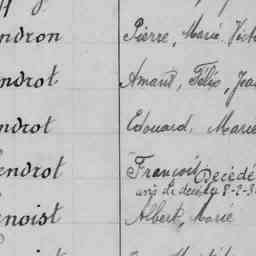 ndron Pierre, Marie Vict
ndrot Amant, Félix, Jea
ndrot Edouard, Marie
endrot François Décédé
8-2-3
enoist Albert, Marie